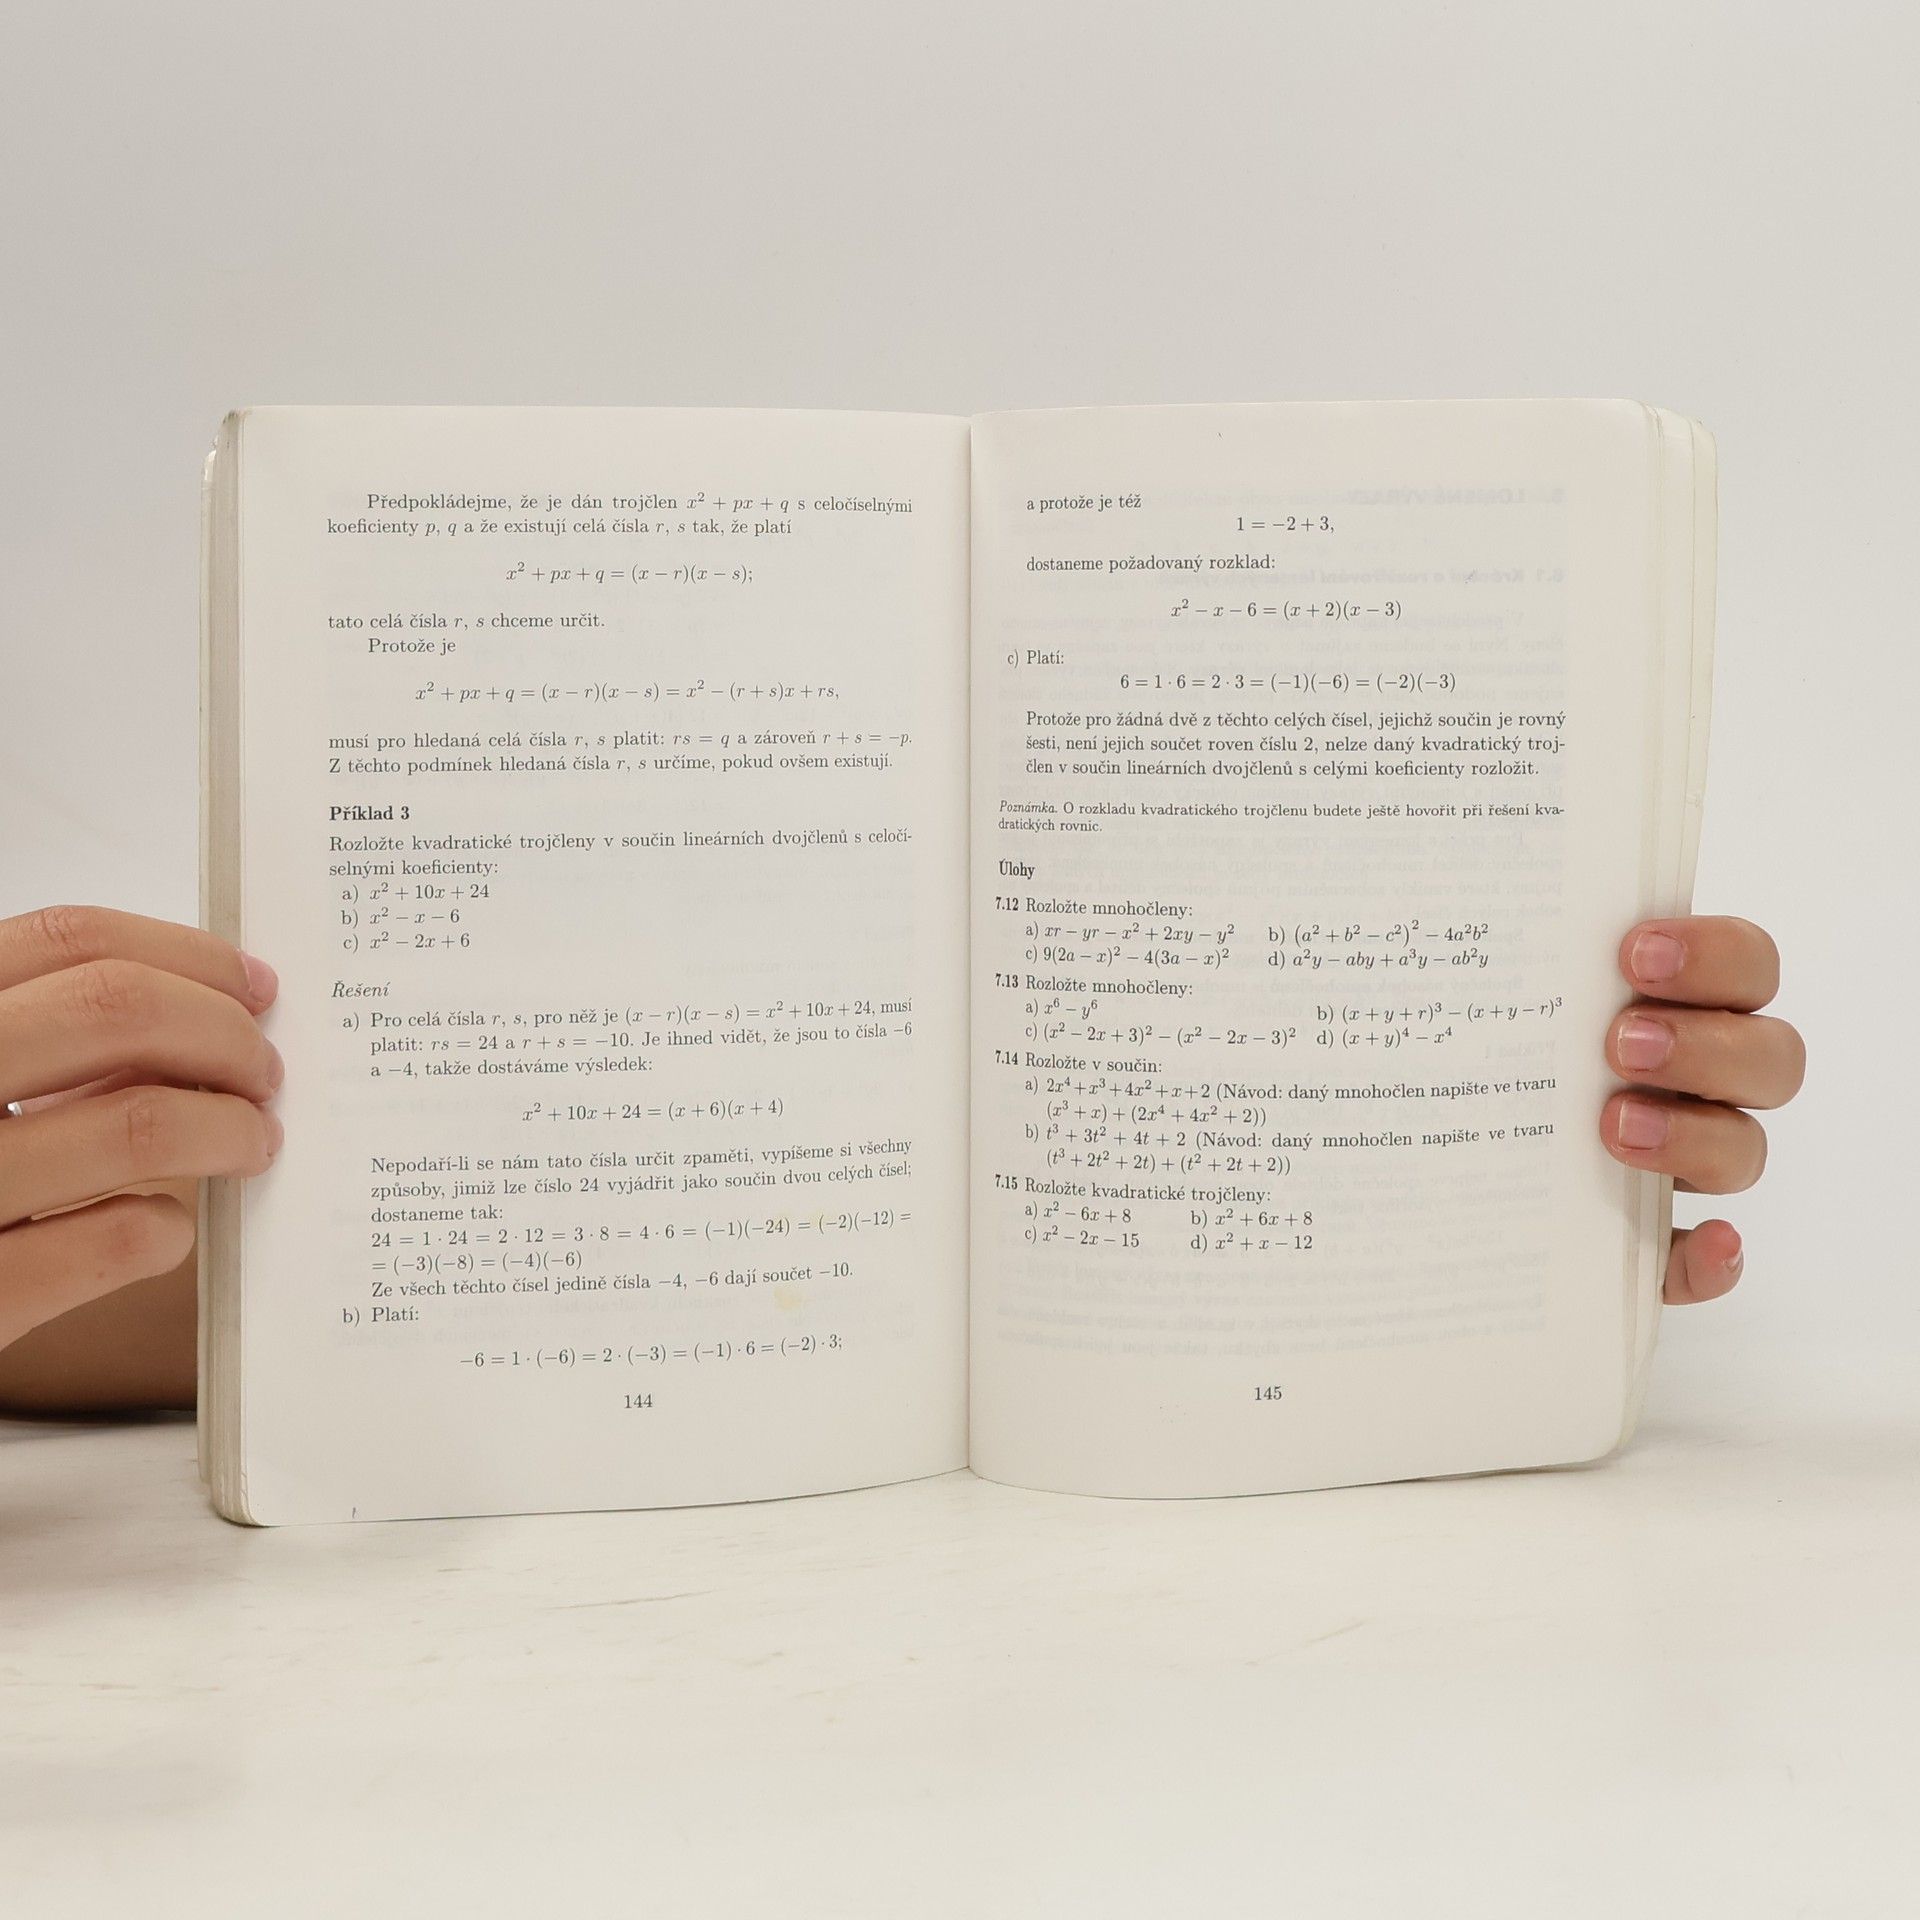 Předpokládejme, že je dán trojčlen x² + px + q s celočíselnými
koeficienty p, q a že existují celá čísla r, s tak, že platí
x² + px + q = (x − r)(x − s);
tato celá čísla r, s chceme určit.
Protože je
x² + px + q = (x − r)(x − s) = x² − (r + s)x + rs,
musí pro hledaná celá čísla r, s platit: rs = q a zároveň r + s = −p.
Z těchto podmínek hledaná čísla r, s určíme, pokud ovšem existují.
Příklad 3
Rozložte kvadratické trojčleny v součin lineárních dvojčlenů s celočí-
selnými koeficienty:
a) x² + 10x + 24
b) x² − x − 6
c) x² − 2x + 6
Řešení
a) Pro celá čísla r, s, pro něž je (x − r)(x − s) = x² + 10x + 24, musí
platit: rs = 24 a r + s = −10. Je ihned vidět, že jsou to čísla −6
a −4, takže dostáváme výsledek:
x² + 10x + 24 = (x + 6)(x + 4)
Nepodaří-li se nám tato čísla určit zpaměti, vypíšeme si všechny
způsoby, jimiž lze číslo 24 vyjádřit jako součin dvou celých čísel;
dostaneme tak:
24 = 1 · 24 = 2 · 12 = 3 · 8 = 4 · 6 = (−1)(−24) = (−2)(−12) =
= (−3)(−8) = (−4)(−6)
Ze všech těchto čísel jedině čísla −4, −6 dají součet −10.
b) Platí:
−6 = 1 · (−6) = 2 · (−3) = (−1) · 6 = (−2) · 3;
144
a protože je též
1 = −2 + 3,
dostaneme požadovaný rozklad:
x² − x − 6 = (x + 2)(x − 3)
c) Platí:
6 = 1 · 6 = 2 · 3 = (−1)(−6) = (−2)(−3)
Protože pro žádná dvě z těchto celých čísel, jejichž součin je rovný
šesti, není jejich součet roven číslu 2, nelze daný kvadratický troj-
člen v součin lineárních dvojčlenů s celými koeficienty rozložit.
Poznámka. O rozkladu kvadratického trojčlenu budete ještě hovořit při řešení kva-
dratických rovnic.
Úlohy
7.12 Rozložte mnohočleny:
a) xr − yr − x² + 2xy − y² b) (a² + b² − c²)² − 4a²b²
c) 9(2a − x)² − 4(3a − x)² d) a²y − aby + a³y − ab²y
7.13 Rozložte mnohočleny:
a) x⁶ − y⁶ b) (x + y + r)³ − (x + y − r)³
c) (x² − 2x + 3)² − (x² − 2x − 3)² d) (x + y)⁴ − x⁴
7.14 Rozložte v součin:
a) 2x⁴ + x³ + 4x² + x + 2 (Návod: daný mnohočlen napište ve tvaru
(x³ + x) + (2x⁴ + 4x² + 2))
b) t³ + 3t² + 4t + 2 (Návod: daný mnohočlen napište ve tvaru
(t³ + 2t² + 2t) + (t² + 2t + 2))
7.15 Rozložte kvadratické trojčleny:
a) x² − 6x + 8 b) x² + 6x + 8
c) x² − 2x − 15 d) x² + x − 12
145